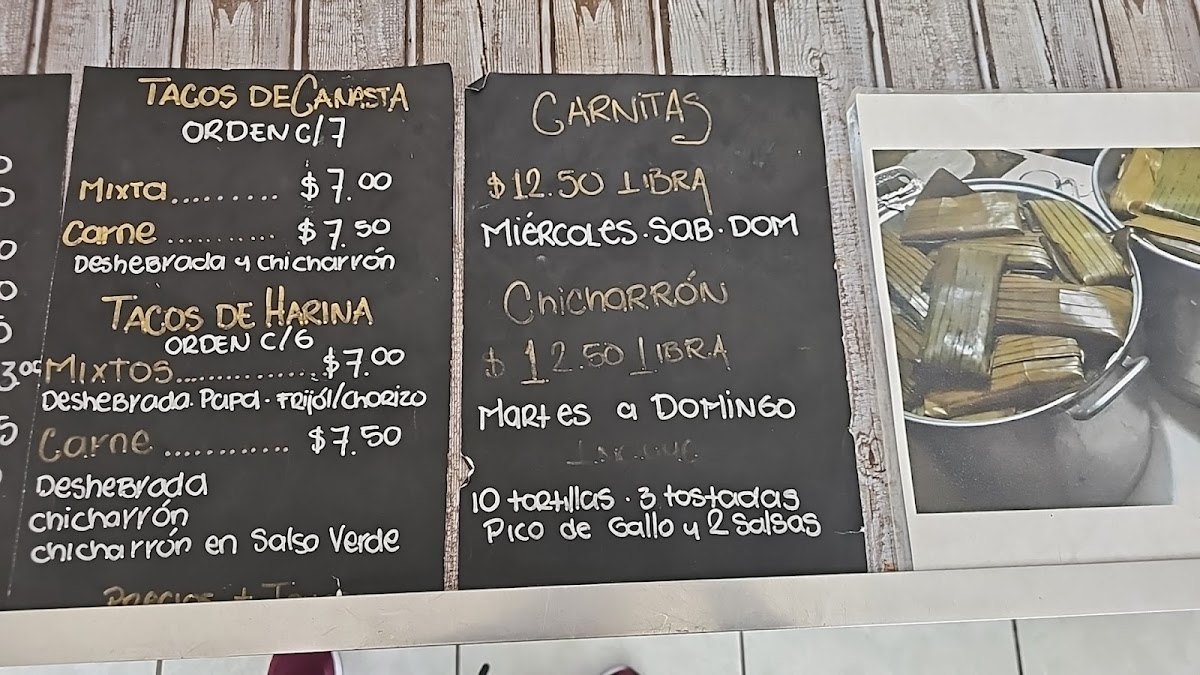 TACOS DE CANASTA
ORDEN C/7
MIXTA......... $7.00
Carne ........... $7.50
DesheBrada y chicharrón
TACOS DE HARINA
ORDEN C/6
MIXTOS.............. $7.00
DesheBrada. Papa. Frijol/Chorizo
Carne ............ $7.50
DesheBrada
chicharrón
chicharrón en Salsa Verde
Precios +
CARNITAS
$12.50 LIBRA
MIÉRCOLES. SAB. DOM
Chicharrón
$12.50 LIBRA
Martes a DOMINGO
10 tortillas. 3 tostadas
Pico de Gallo y 2 Salsas